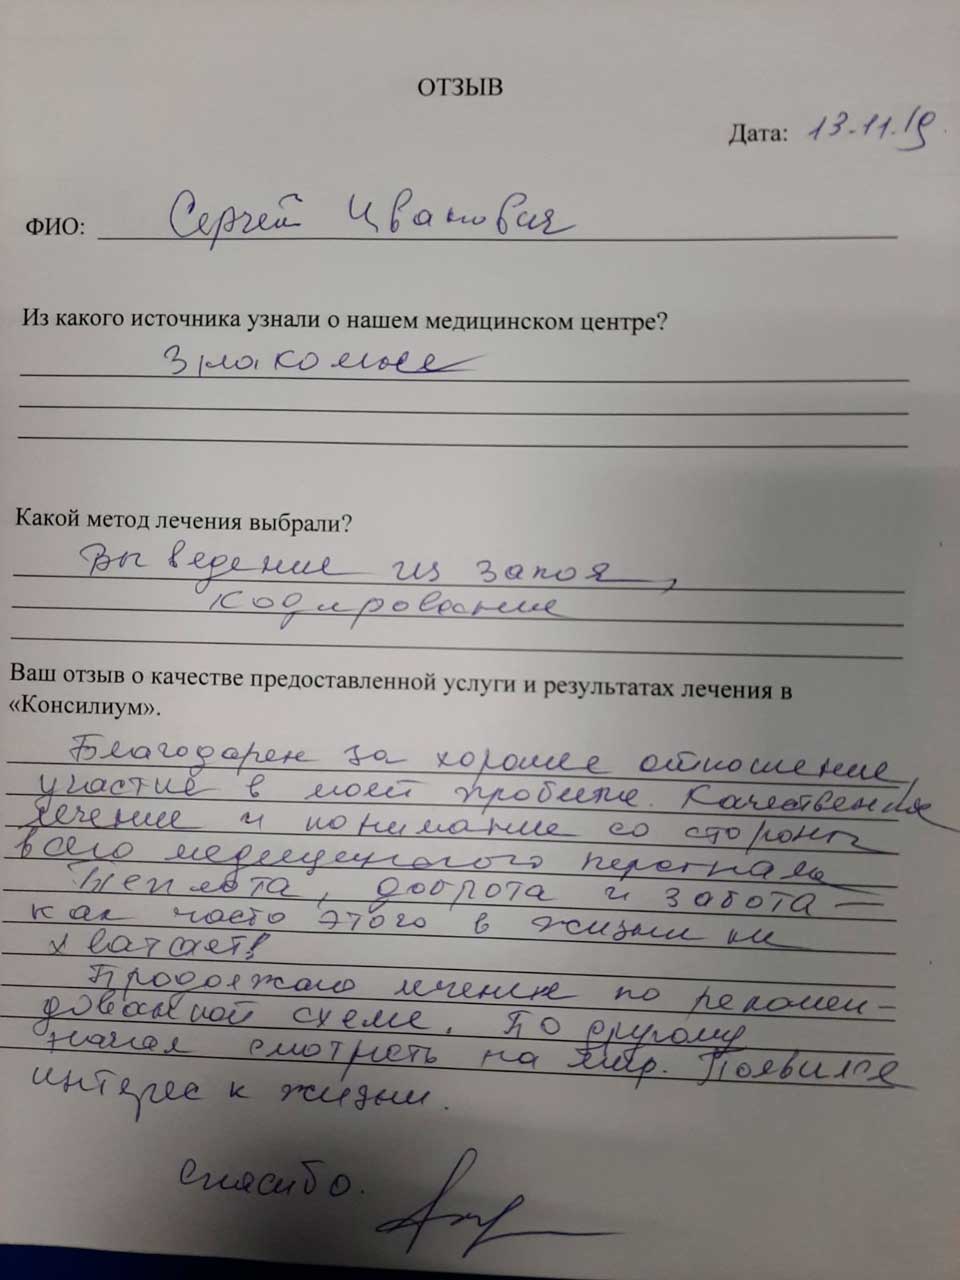 ОТЗЫВ
Дата: 13.11.19
ФИО: Сергей Иванович
Из какого источника узнали о нашем медицинском центре?
Знакомые
Какой метод лечения выбрали?
Выведение из запоя,
кодирование
Ваш отзыв о качестве предоставленной услуги и результатах лечения в
«Консилиум».
Благодарен за хорошее отношение,
участие в моей проблеме. Качественное
лечение и понимание со стороны
всего медицинского персонала
Теплота, доброта и забота —
как часто этого в жизни не
хватает!
Продолжаю лечение по рекомен-
дованной схеме. По другому
начал смотреть на мир. Появился
интерес к жизни.
Спасибо.